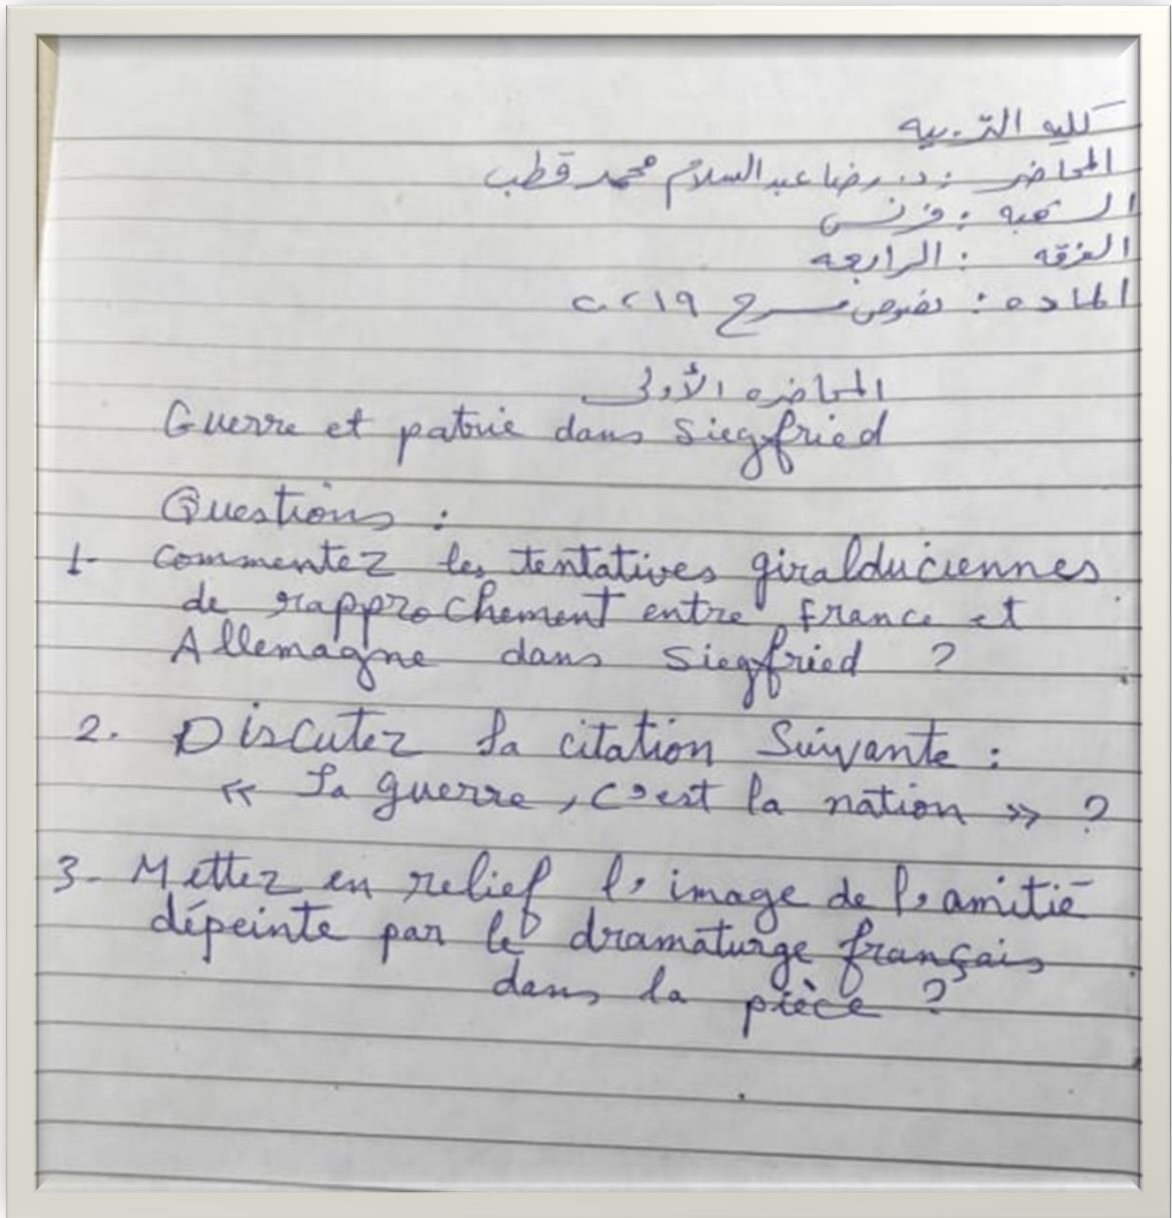 كليه التربيه
المحاضر : د. رضا عبد السلام محمد قطب
الشعبه : فرنسى
الفرقه : الرابعه
الماده : نصوص مسرح ١٩
المحاضره الأولى
Guerre et patrie dans Siegfried
Questions :
1- Commentez les tentatives giralduciennes
de rapprochement entre France et
Allemagne dans Siegfried ?
2. Discutez la citation Suivante :
« La guerre, c'est la nation » ?
3- Mettez en relief l'image de l'amitié
dépeinte par le dramaturge français
dans la pièce ?